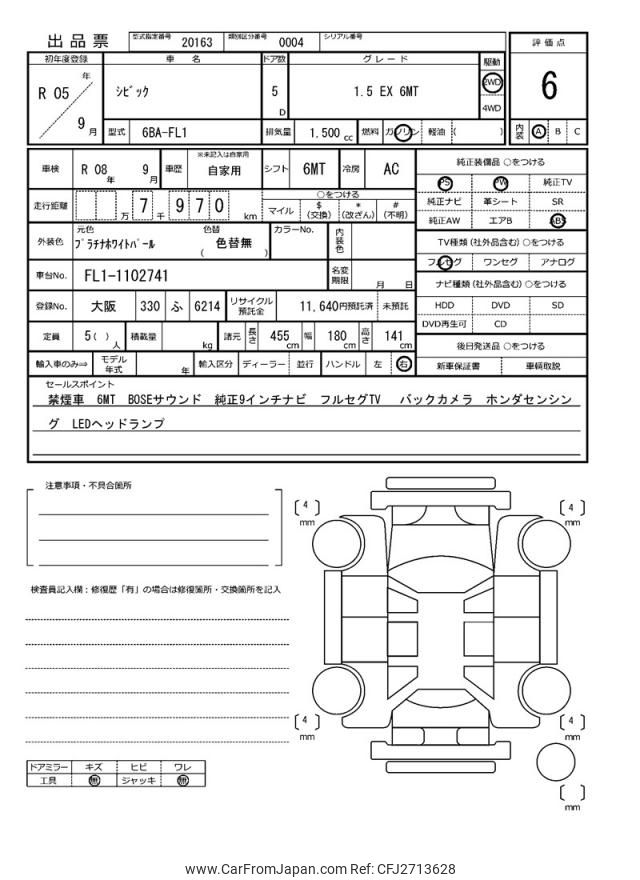 出品票
型式指定番号 20163 類別区分番号 0004 シリアル番号
評価点
6
初年度登録 車名 ドア数 グレード 駆動
R 05 年 9 月
シビック 5 D 1.5 EX 6MT 2WD
4WD
型式 6BA-FL1 排気量 1.500 cc 燃料 ガソリン 軽油 ( )
内装 A B C
車検 R 08 年 9 月 車歴 ※未記入は自家用 自家用 シフト 6MT 冷房 AC
走行距離 万 7 千 9 7 0 km
○をつける
マイル $(交換) *(改ざん) #(不明)
外装色 元色 プラチナホワイトパール 色替 色替無 ( ) カラーNo. 内装色
車台No. FL1-1102741 名変期限 月 日
登録No. 大阪 330 ふ 6214 リサイクル預託金 11,640円預託済 未預託
定員 5( )人 積載量 kg 諸元 長さ 455 cm 幅 180 cm 高さ 141 cm
輸入車のみ⇒ モデル年式 年 輸入区分 ディーラー 並行 ハンドル 左 右
純正装備品 ○をつける
PS PW 純正TV
純正ナビ 革シート SR
純正AW エアB ABS
TV種類(社外品含む)○をつける
フルセグ ワンセグ アナログ
ナビ種類(社外品含む)○をつける
HDD DVD SD
DVD再生可 CD
後日発送品 ○をつける
新車保証書 車輌取説
セールスポイント
禁煙車 6MT BOSEサウンド 純正9インチナビ フルセグTV バックカメラ ホンダセンシン
グ LEDヘッドランプ
注意事項・不具合箇所
検査員記入欄:修復歴「有」の場合は修復箇所・交換箇所を記入
[ 4 ] mm
[ 4 ] mm
[ 4 ] mm
[ 4 ] mm
[ ] mm
ドアミラー キズ ヒビ ワレ
工具 無 ジャッキ 無
www.CarFromJapan.com Ref: CFJ2713628